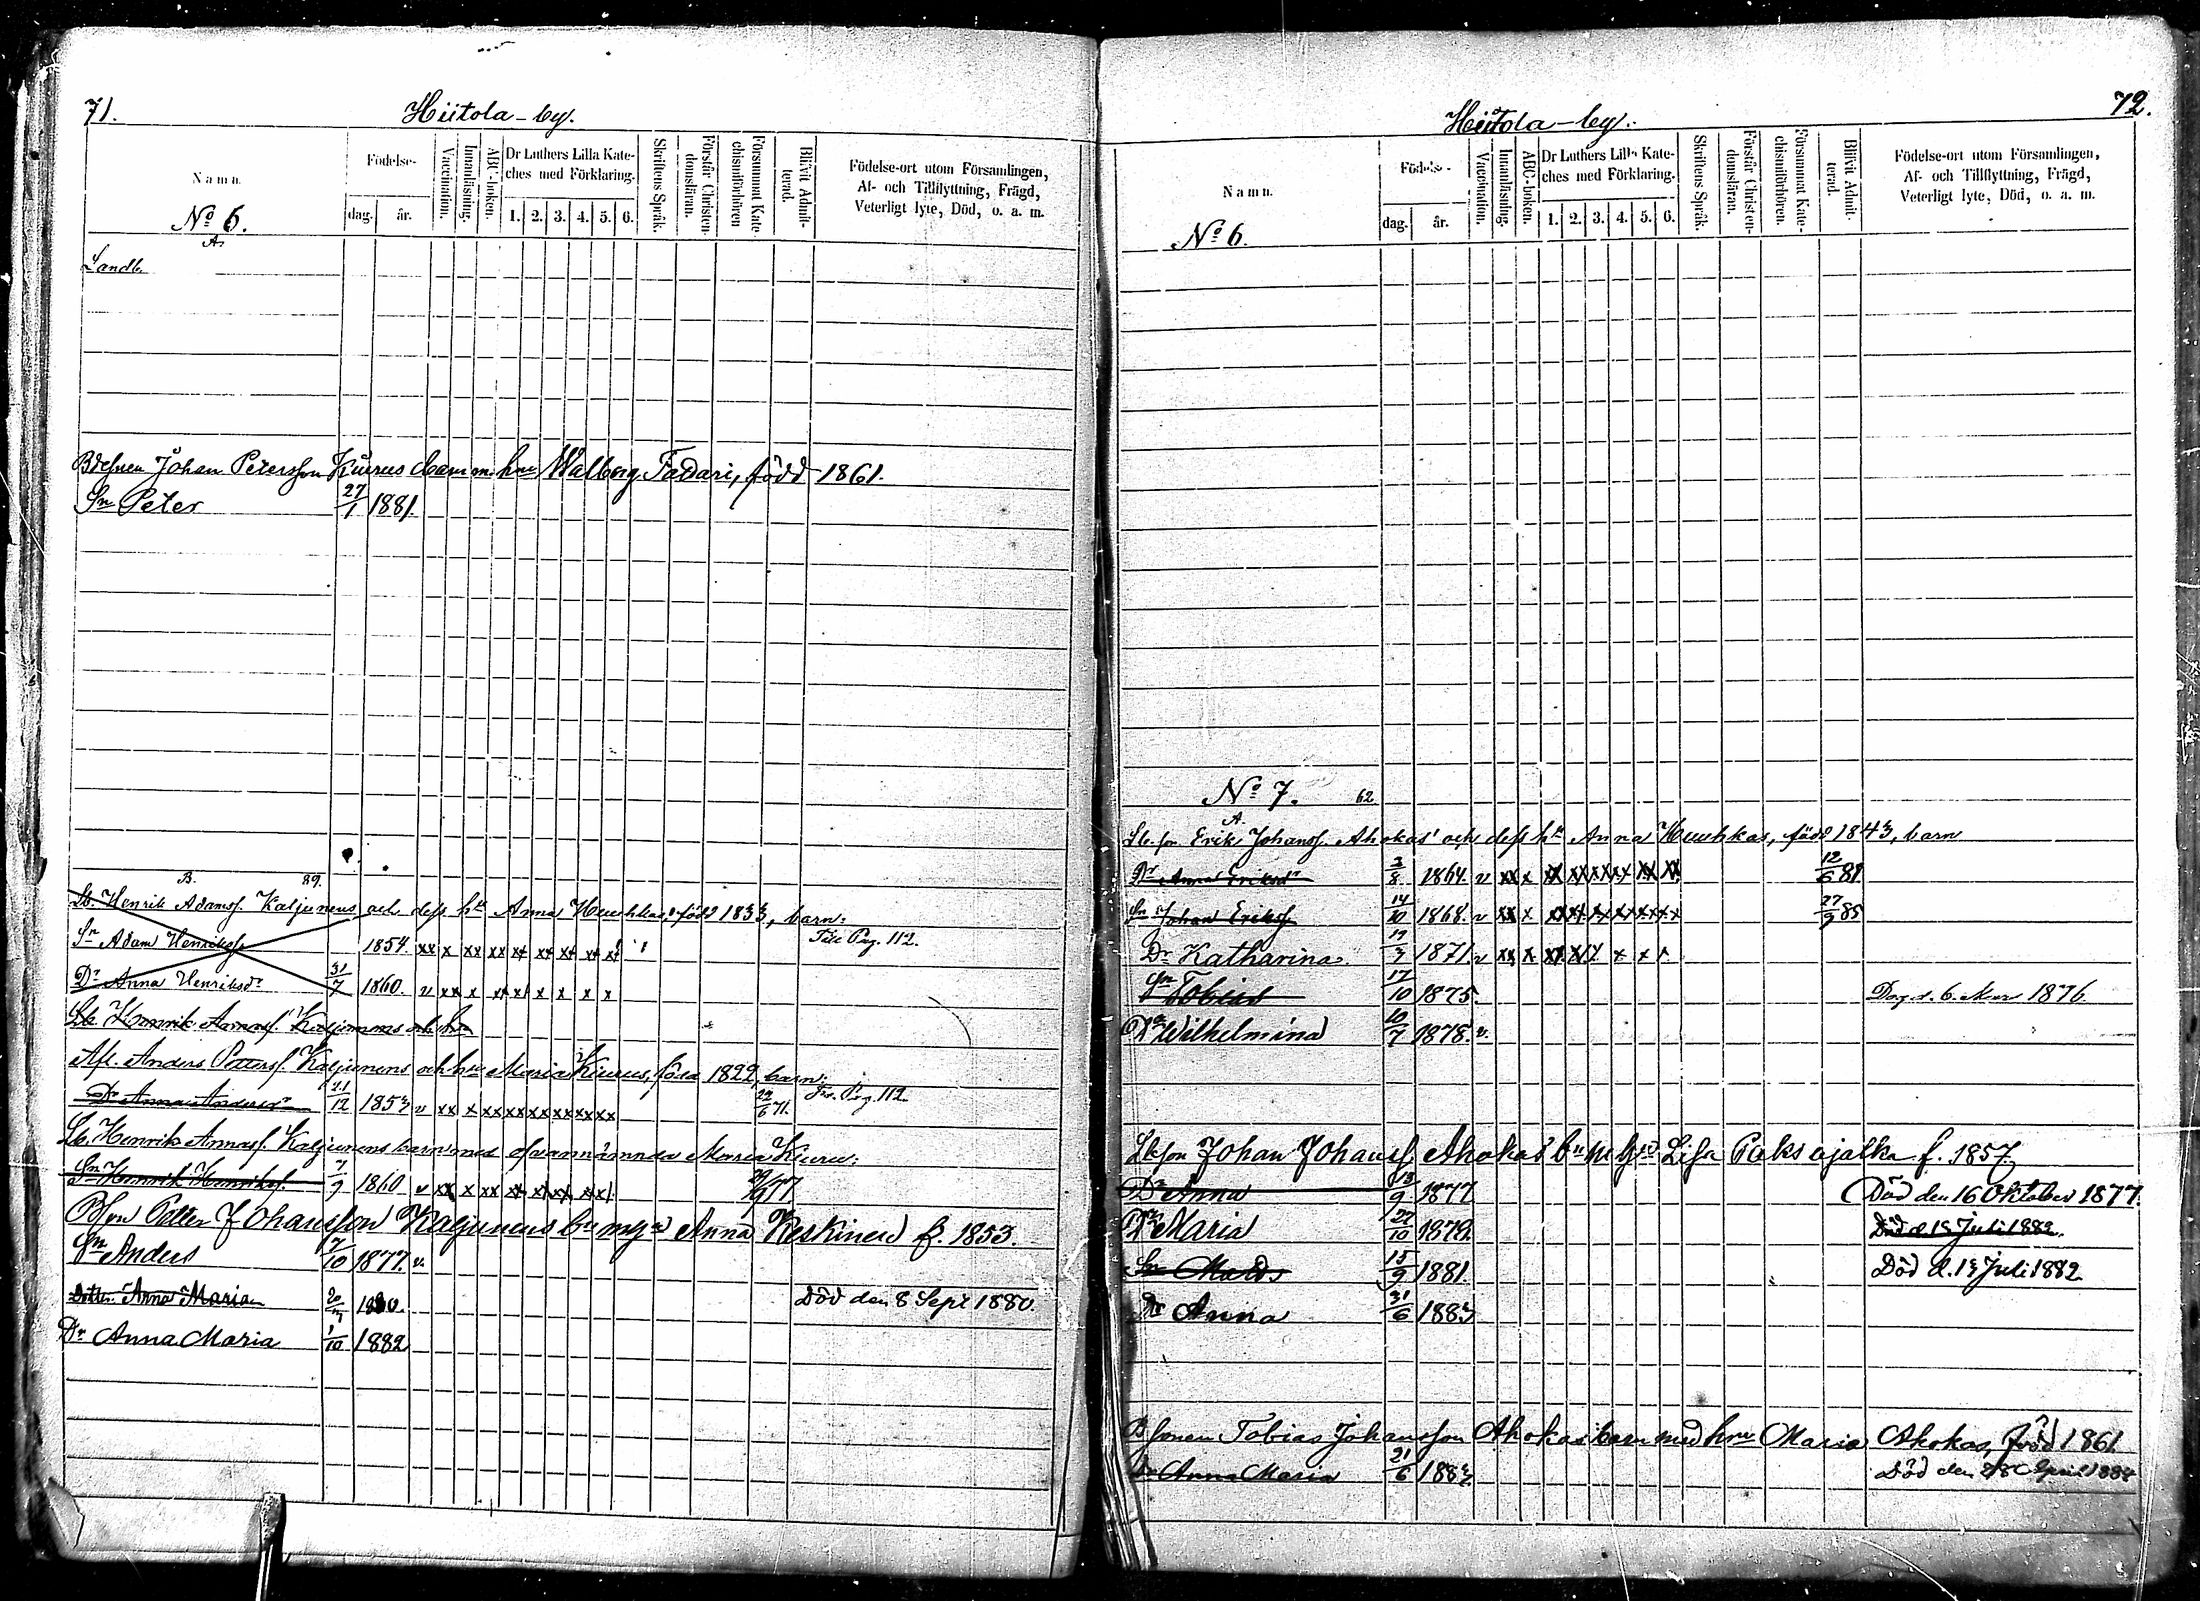 71.
Hiitola-by.
Namn.
Födelse-
dag.
år.
Vaccination.
Innanläsning.
ABC-boken.
Dr Luthers Lilla Kate-
ches med Förklaring.
1. 2. 3. 4. 5. 6.
Skriftens Språk.
Förstår Christen-
domsläran.
Försummat Kate-
chismiförhören
Blifvit Admit-
terad.
Födelse-ort utom Församlingen,
Af- och Tillflyttning, Frägd,
Veterligt lyte, Död, o. a. m.
No 6.
A.
Landb.
Johan Petersson Kiurus barn m. hu Walborg Tadari, född 1861.
Sn Peter 27/1 1881.
B. 89.
Lb. Henrik Adamss. Kaljunens och dess hu Anna född 1833, barn:
Sn Adam Henrikss. 1854. xx x xx xx xx xx xx xx Pag. 112.
Dr Anna Henriksdr 31/7 1860. v xx x xx x x x x x
Lb. Henrik Kaljunens och hu
Afl. Anders Petterss. Kaljunens och hu Maria Kiurus, född 1822, barn:
Dr Anna Andersdr 21/12 1853 v xx x xx xx xx xx xx xx 22/6 71. Pag. 112.
Lb. Henrik Kaljunens barn med ofvannämnda Maria Kiuru:
Sn Henrik Henrikss. 7/9 1860 v xx x xx xx xx xx 29/9 77
Petter Johansson Kaljunens Anna Keskinen f. 1853.
Sn Anders 7/10 1877. v.
Dotter Anna Maria 1880. Död den 8 Sept 1880.
Dr Anna Maria 1/10 1882
72.
Hiitola-by.
Namn.
Födelse-
dag.
år.
Vaccination.
Innanläsning.
ABC-boken.
Dr Luthers Lilla Kate-
ches med Förklaring.
1. 2. 3. 4. 5. 6.
Skriftens Språk.
Förstår Christen-
domsläran.
Försummat Kate-
chismiförhören.
Blifvit Admit-
terad.
Födelse-ort utom Församlingen,
Af- och Tillflyttning, Frägd,
Veterligt lyte, Död, o. a. m.
No 6.
No 7. 62
A.
Lb. son Erik Johanss. Ahokas' och dess hu Anna född 1843, barn
Dr Anna Eriksdr 3/8 1864. v xx x xx xx xx xx xx xx 12/6 81
Sn Johan Erikss. 14/10 1868. v xx x xx xx xx xx xx xx 27/9 85
Dr Katharina. 19/3 1871. v xx x xx xx x x x
Sn Tobias 17/10 1875. d. 6. 1876.
Dr Wilhelmina 10/7 1878. v.
Lbson Johan Johanss. Ahokas Lisa Paksujalka f. 1857.
Dr Anna 13/9 1877 Död den 16 Oktober 1877.
Dr Maria 27/10 1879. Död d. 13 Juli 1882.
Sn Mats 15/9 1881. Död d. 13 Juli 1882
Dr Anna 31/6 1883
Tobias Johansson Ahokas barn med hru Maria Ahokas, född 1861
Dr Anna Maria 21/6 1883 Död den 28 April 1884